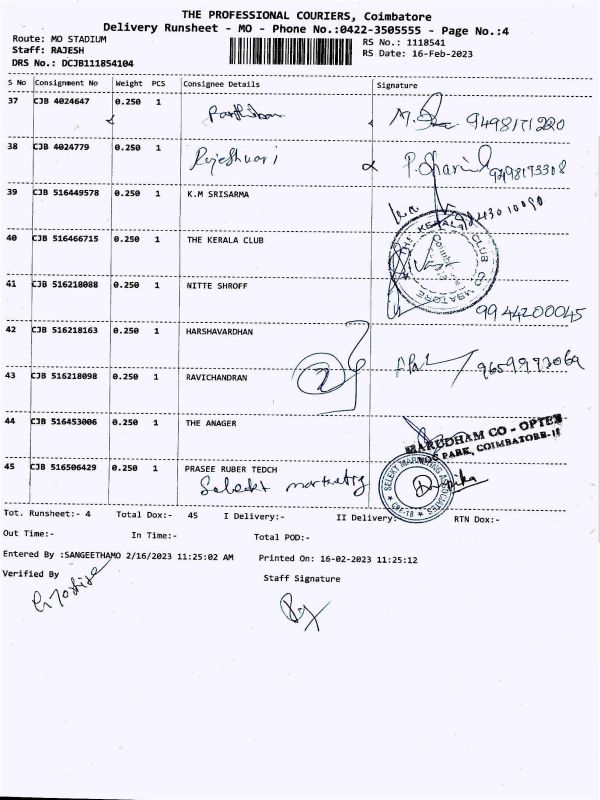 THE PROFESSIONAL COURIERS, Coimbatore
Delivery Runsheet - MO - Phone No.:0422-3505555 - Page No.:4
Route: MO STADIUM
Staff: RAJESH
DRS No.: DCJB111854104
RS No.: 1118541
RS Date: 16-Feb-2023
S No Consignment No Weight PCS Consignee Details Signature
37 CJB 4024647 0.250 1 Parthiban 9498171220
38 CJB 4024779 0.250 1 Rajeshwari 9498173308
39 CJB 516449578 0.250 1 K.M SRISARMA 9843010090
40 CJB 516466715 0.250 1 THE KERALA CLUB
THE KERALA CLUB COIMBATORE
41 CJB 516218088 0.250 1 NITTE SHROFF 9944200045
42 CJB 516218163 0.250 1 HARSHAVARDHAN
2
43 CJB 516218098 0.250 1 RAVICHANDRAN
44 CJB 516453006 0.250 1 THE ANAGER
MARUDHAM CO - OPTEX
VOC PARK, COIMBATORE-18
45 CJB 516506429 0.250 1 PRASEE RUBER TEDCH
Selekt marketing
SELEKT MARKETING ASSOCIATES
CBE-18
Tot. Runsheet:- 4 Total Dox:- 45 I Delivery:- II Delivery:- RTN Dox:-
Out Time:- In Time:- Total POD:-
Entered By :SANGEETHAMO 2/16/2023 11:25:02 AM Printed On: 16-02-2023 11:25:12
Verified By
Staff Signature